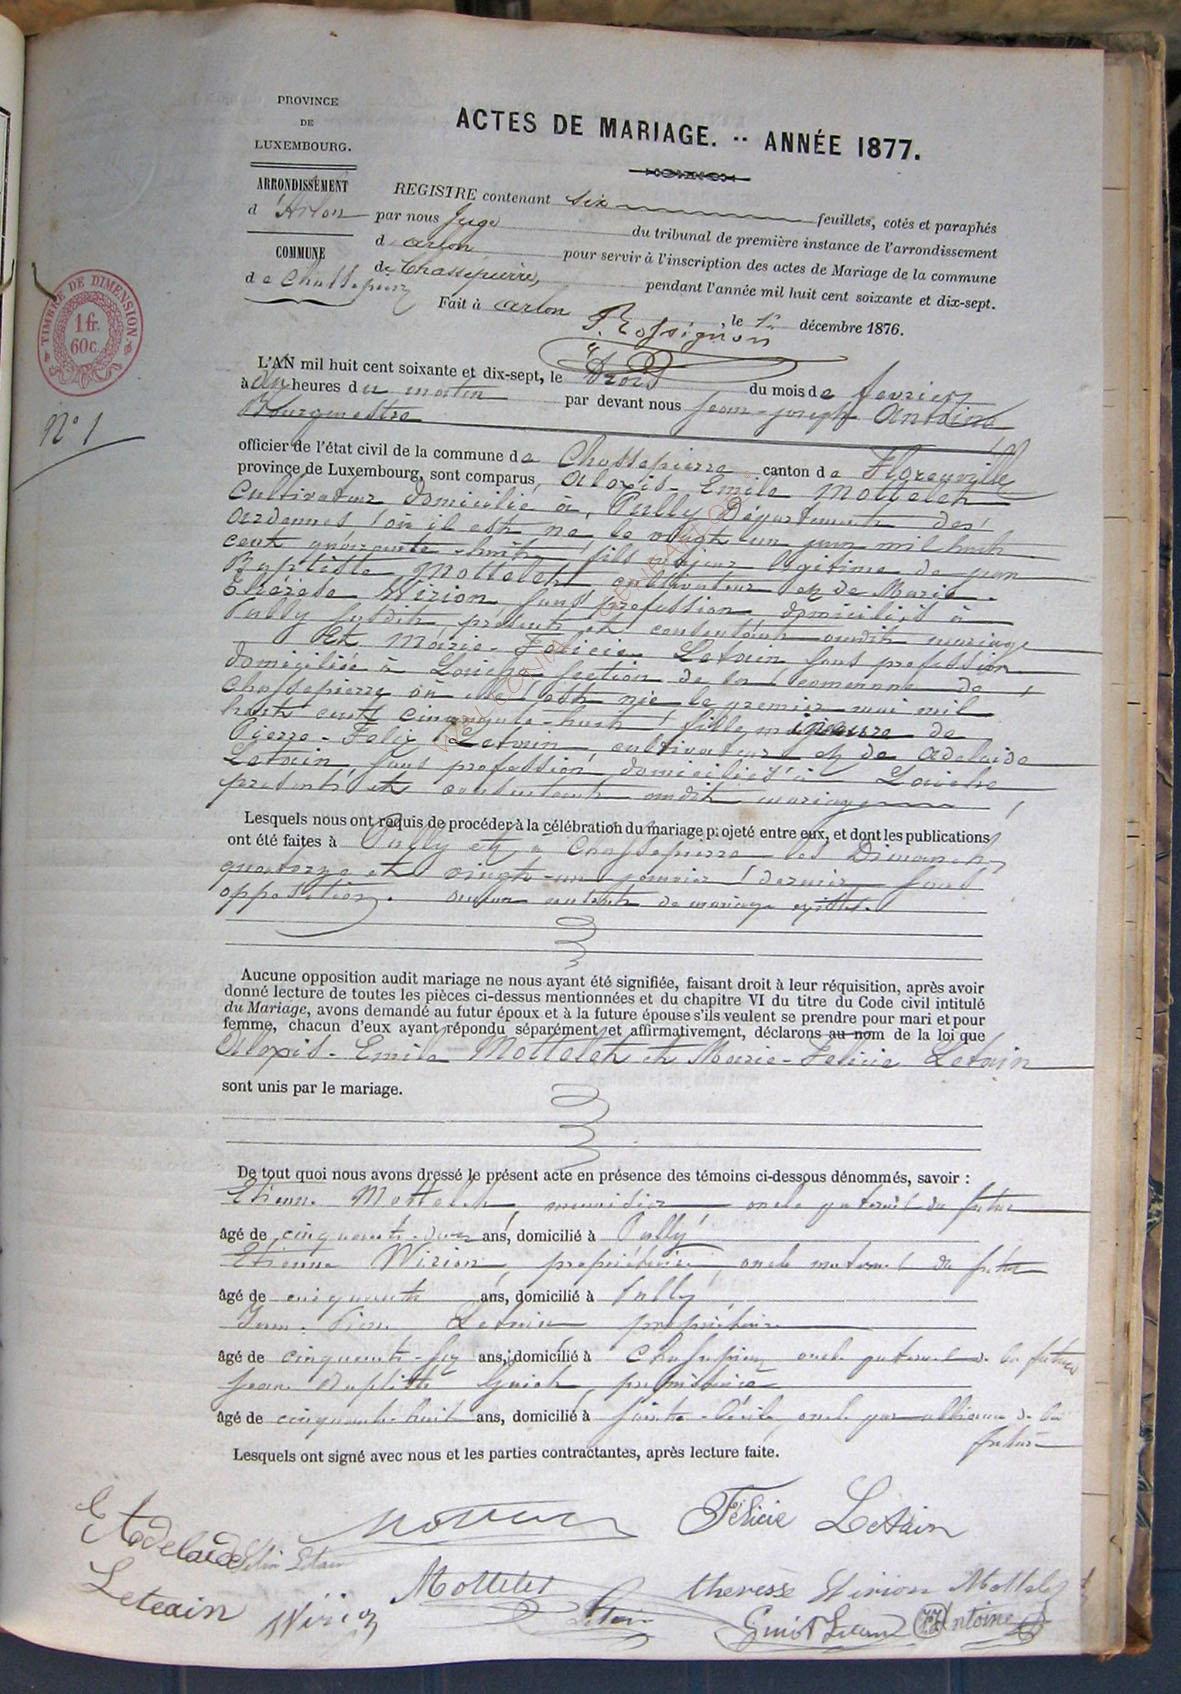 PROVINCE
DE
LUXEMBOURG.
ARRONDISSEMENT
d'Arlon
COMMUNE
de Chassepierre
TIMBRE DE DIMENSION
1 fr.
60 c.
N° 1
ACTES DE MARIAGE. -- ANNÉE 1877.
REGISTRE contenant six feuillets, cotés et paraphés
par nous Juge du tribunal de première instance de l'arrondissement
d'arlon, pour servir à l'inscription des actes de Mariage de la commune
de Chassepierre, pendant l'année mil huit cent soixante et dix-sept.
Fait à arlon, le décembre 1876.
L'AN mil huit cent soixante et dix-sept, le trois du mois de fevrier
à heures du matin par devant nous Jean-joseph Antoine
Bourgmestre
officier de l'état civil de la commune de Chassepierre canton de Florenville
province de Luxembourg, sont comparus, Alexis-Emile Mottelet
cultivateur domicilié à Pully Département des
ardennes où il est né le vingt un juin mil huit
cent quarante-huit, fils majeur légitime de jean
Baptiste Mottelet cultivateur et de Marie
Thérèse Wirion, sans profession domiciliés à
Pully susdit, présents et consentant audit mariage
Et Marie-Felicie Letain sans profession
domiciliée à Laiche section de la commune de
Chassepierre où elle est née le premier mai mil
huit cent cinquante-huit, fille mineure de
Pierre-Felix Letain, cultivateur et de Adelaide
Letain, sans profession, domiciliés à Laiche
présents et consentant audit mariage
Lesquels nous ont requis de procéder à la célébration du mariage projeté entre eux, et dont les publications
ont été faites à Pully et à Chassepierre les Dimanches
quatorze et vingt-un janvier dernier sans
opposition. aucun contrat de mariage existe.
Aucune opposition audit mariage ne nous ayant été signifiée, faisant droit à leur réquisition, après avoir
donné lecture de toutes les pièces ci-dessus mentionnées et du chapitre VI du titre du Code civil intitulé
du Mariage, avons demandé au futur époux et à la future épouse s'ils veulent se prendre pour mari et pour
femme, chacun d'eux ayant répondu séparément et affirmativement, déclarons au nom de la loi que
Alexis-Emile Mottelet et Marie-Felicie Letain
sont unis par le mariage.
De tout quoi nous avons dressé le présent acte en présence des témoins ci-dessous dénommés, savoir :
Etienne Mottelet, menuisier oncle paternel du futur
âgé de cinquante-deux ans, domicilié à Pully
Etienne Wirion, propriétaire, oncle maternel du futur
âgé de cinquante ans, domicilié à Pully
Letain propriétaire
âgé de cinquante-six ans, domicilié à Chassepierre oncle paternel de la future
Jean Baptiste
âgé de cinquante-huit ans, domicilié à Sainte-Cécile, oncle par alliance de la
future
Lesquels ont signé avec nous et les parties contractantes, après lecture faite.
Félicie Letain
Adelaide
Letain
Mottelet
therese Wirion Mottelet
Wirion
Letain
Antoine